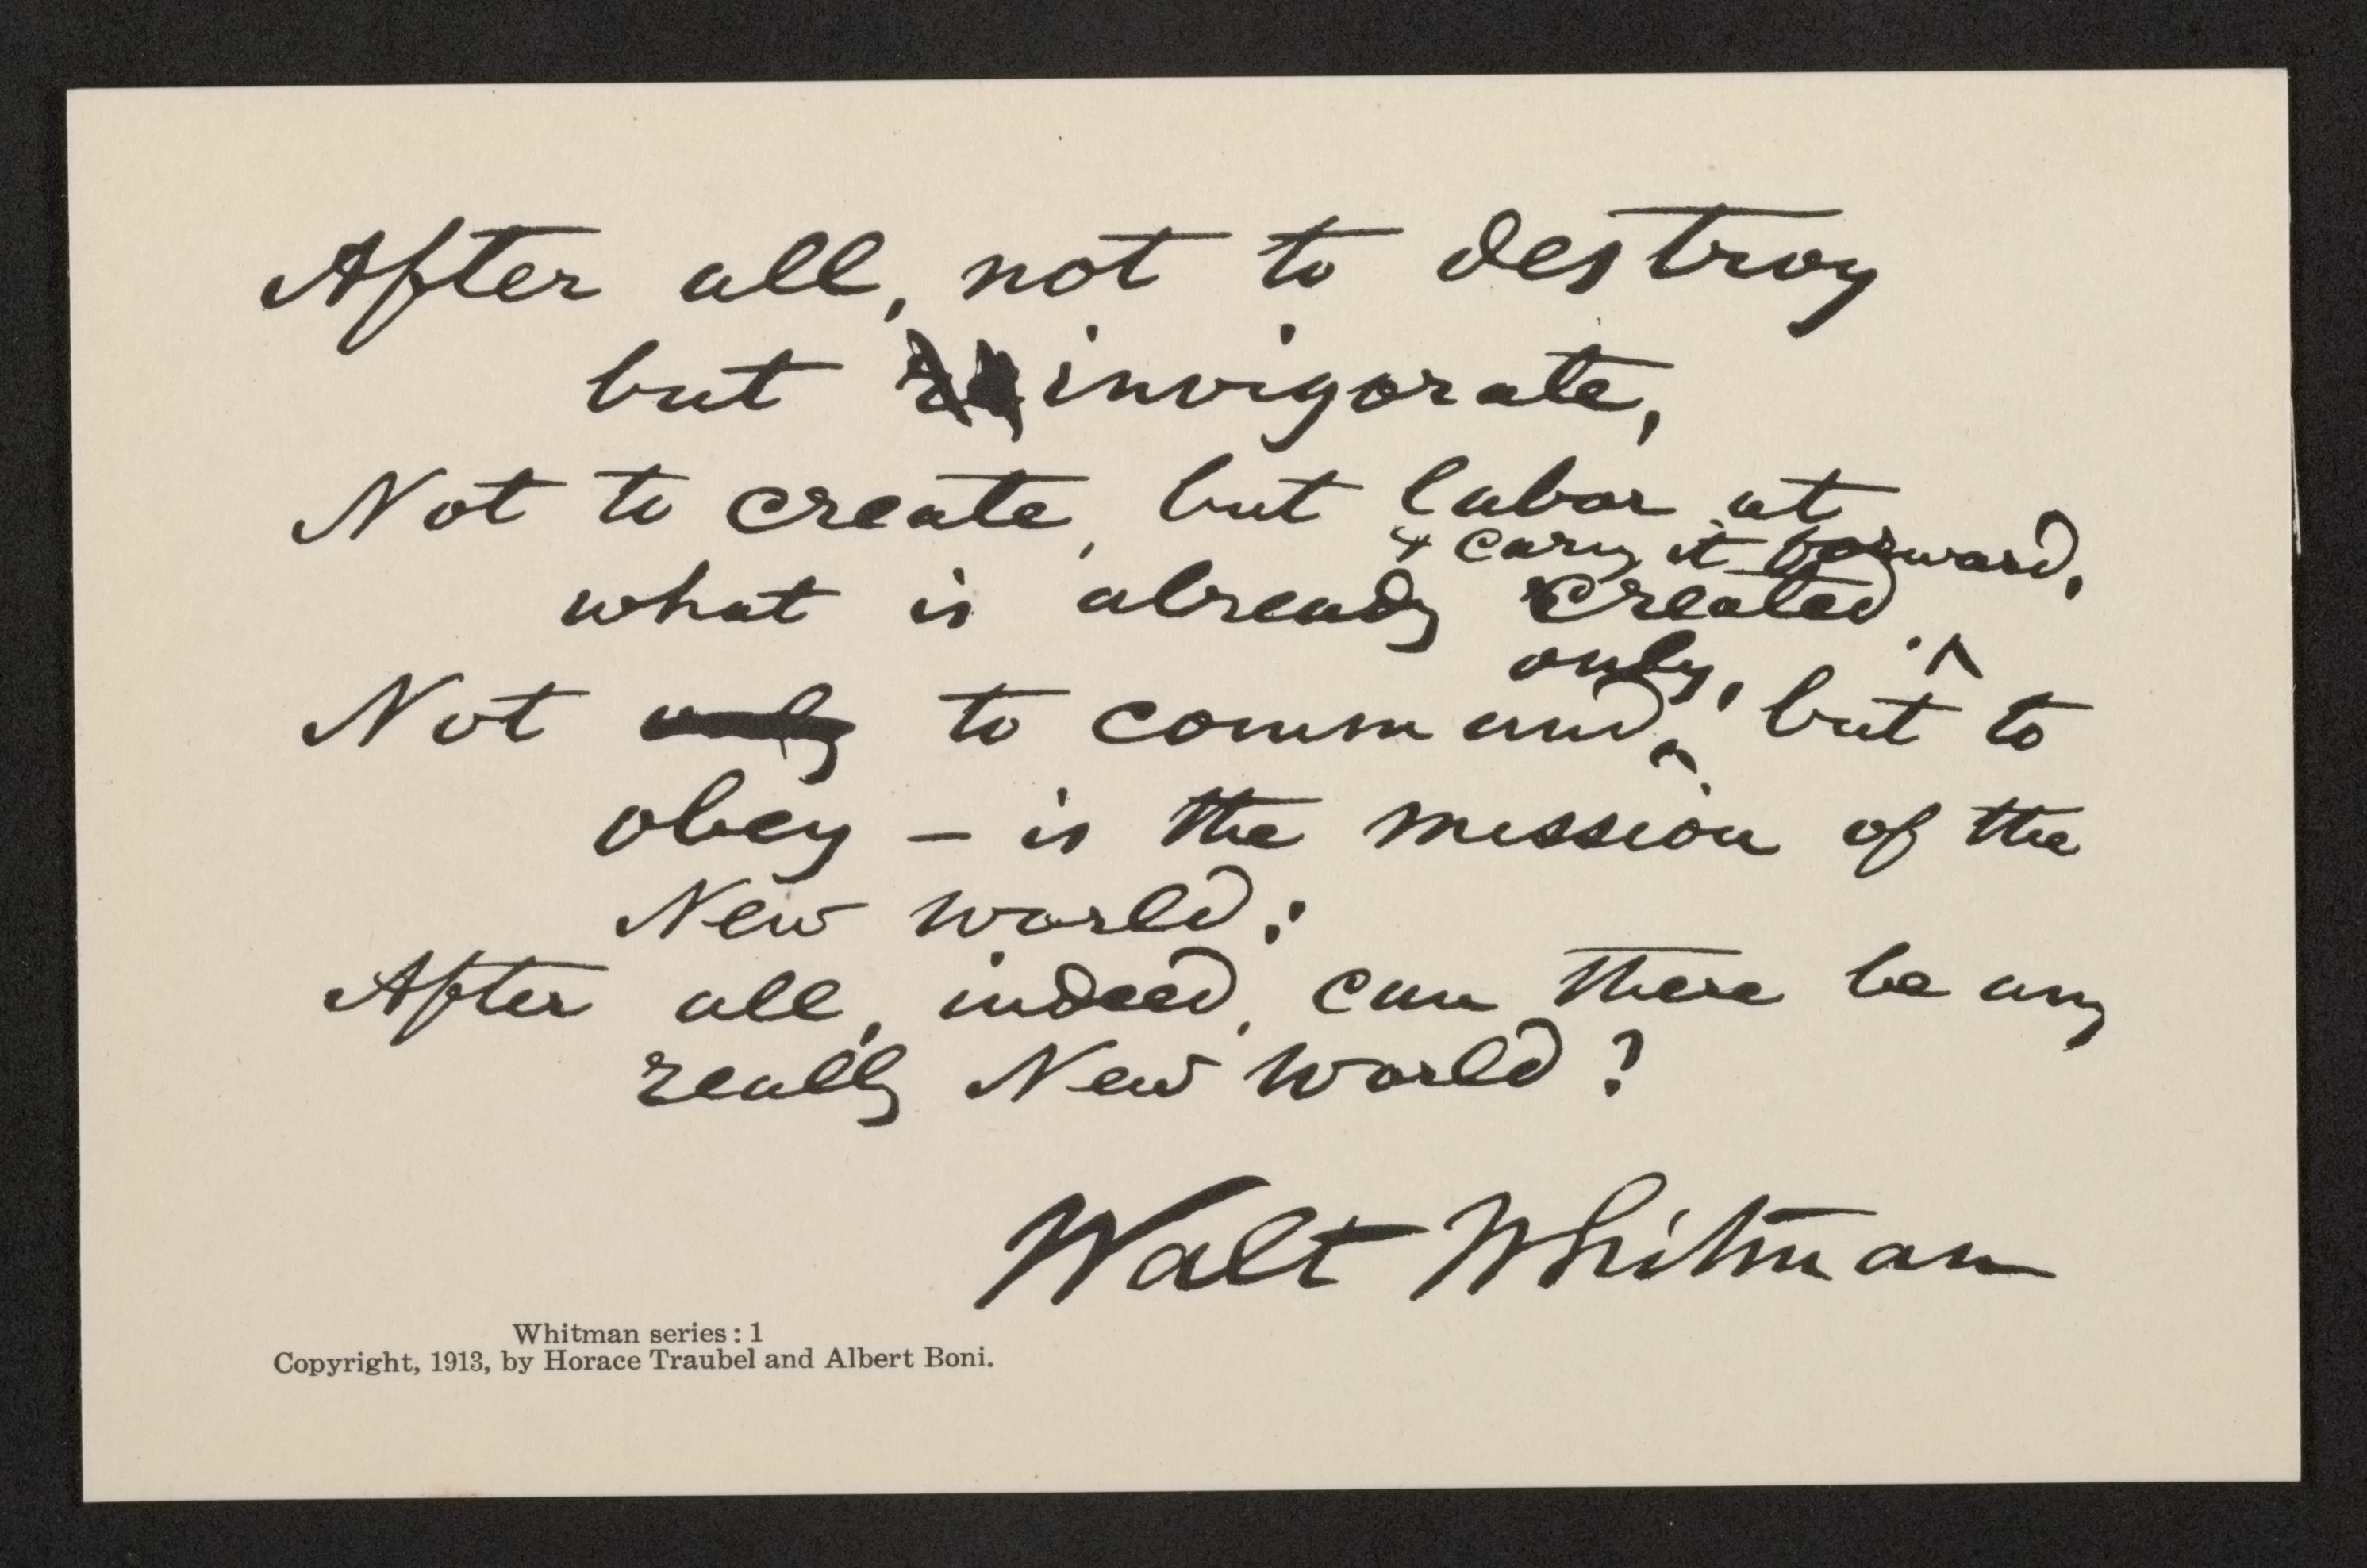 After all, not to destroy
but invigorate,
Not to create, but labor at
& cary it forward,
what is already created.
only,
Not only to command, but to
obey – is the mission of the
New world:
After all, indeed, can there be any
really New World?
Walt Whitman
Whitman series: 1
Copyright, 1913, by Horace Traubel and Albert Boni.